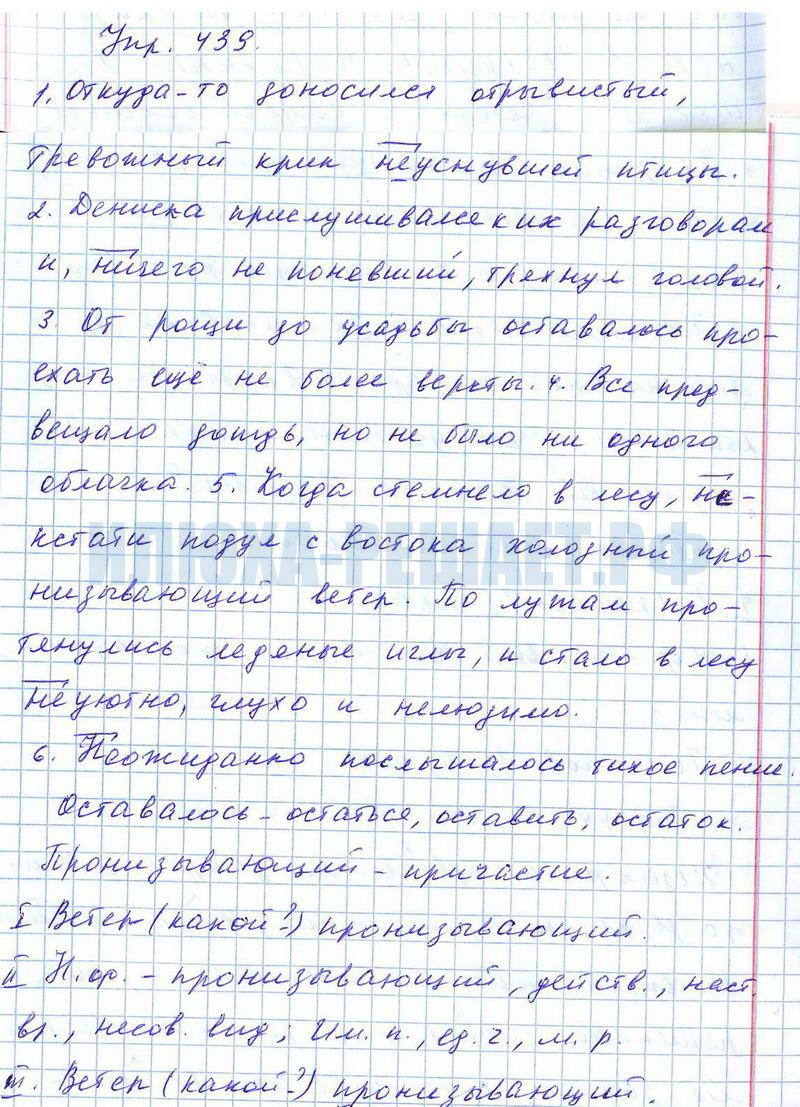 Упр. 439.
1. Откуда-то доносился отрывистый,
тревожный крик неуснувшей птицы.
2. Дениска прислушивался к их разговорам
и, ничего не понявший, тряхнул головой.
3. От рощи до усадьбы оставалось про-
ехать ещё не более версты. 4. Все пред-
вещало дождь, но не было ни одного
облачка. 5. Когда стемнело в лесу, не-
кстати подул с востока холодный про-
низывающий ветер. По лужам про-
тянулись ледяные иглы, и стало в лесу
неуютно, глухо и нелюдимо.
6. Неожиданно послышалось тихое пение.
Оставалось – остаться, оставить, остаток.
Пронизывающий – причастие.
I Ветер (какой?) пронизывающий.
II Н.ф. – пронизывающий, действ., наст.
вр., несов. вид; Им. п., ед. ч., м. р.
III. Ветер (какой?) пронизывающий.
ИЛЮХА-РЕШАЕТ.РФ